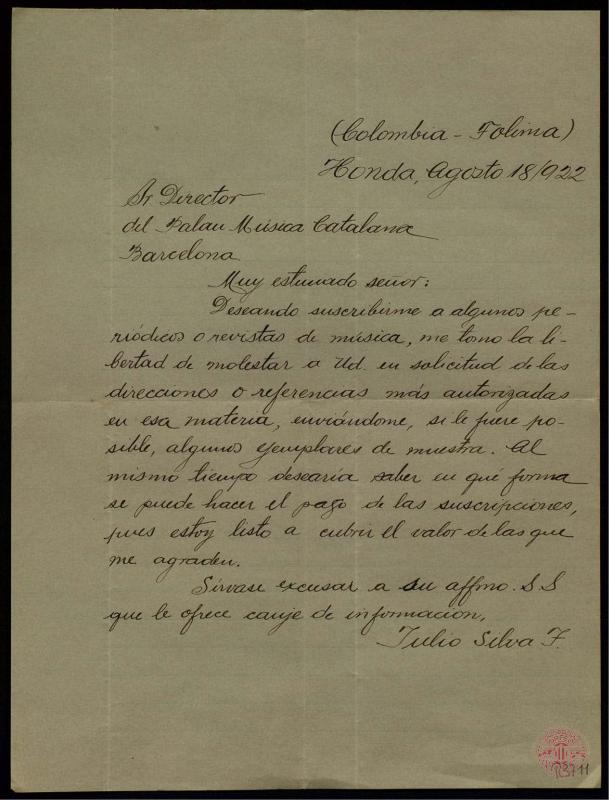 (Colombia - Tolima)
Honda, Agosto 18/922
Sr Director
del Palau Música Catalana
Barcelona
Muy estimado señor:
Deseando suscribirme a algunos pe-
riódicos o revistas de música, me tomo la li-
bertad de molestar a Ud. en solicitud de las
direcciones o referencias más autorizadas
en esa materia, enviándome, si le fuere po-
sible, algunos ejemplares de muestra. Al
mismo tiempo desearía saber en qué forma
se puede hacer el pago de las suscripciones,
pues estoy listo a cubrir el valor de las que
me agraden.
Sírvase excusar a su affmo. S.S
que le ofrece canje de información,
Julio Silva F.